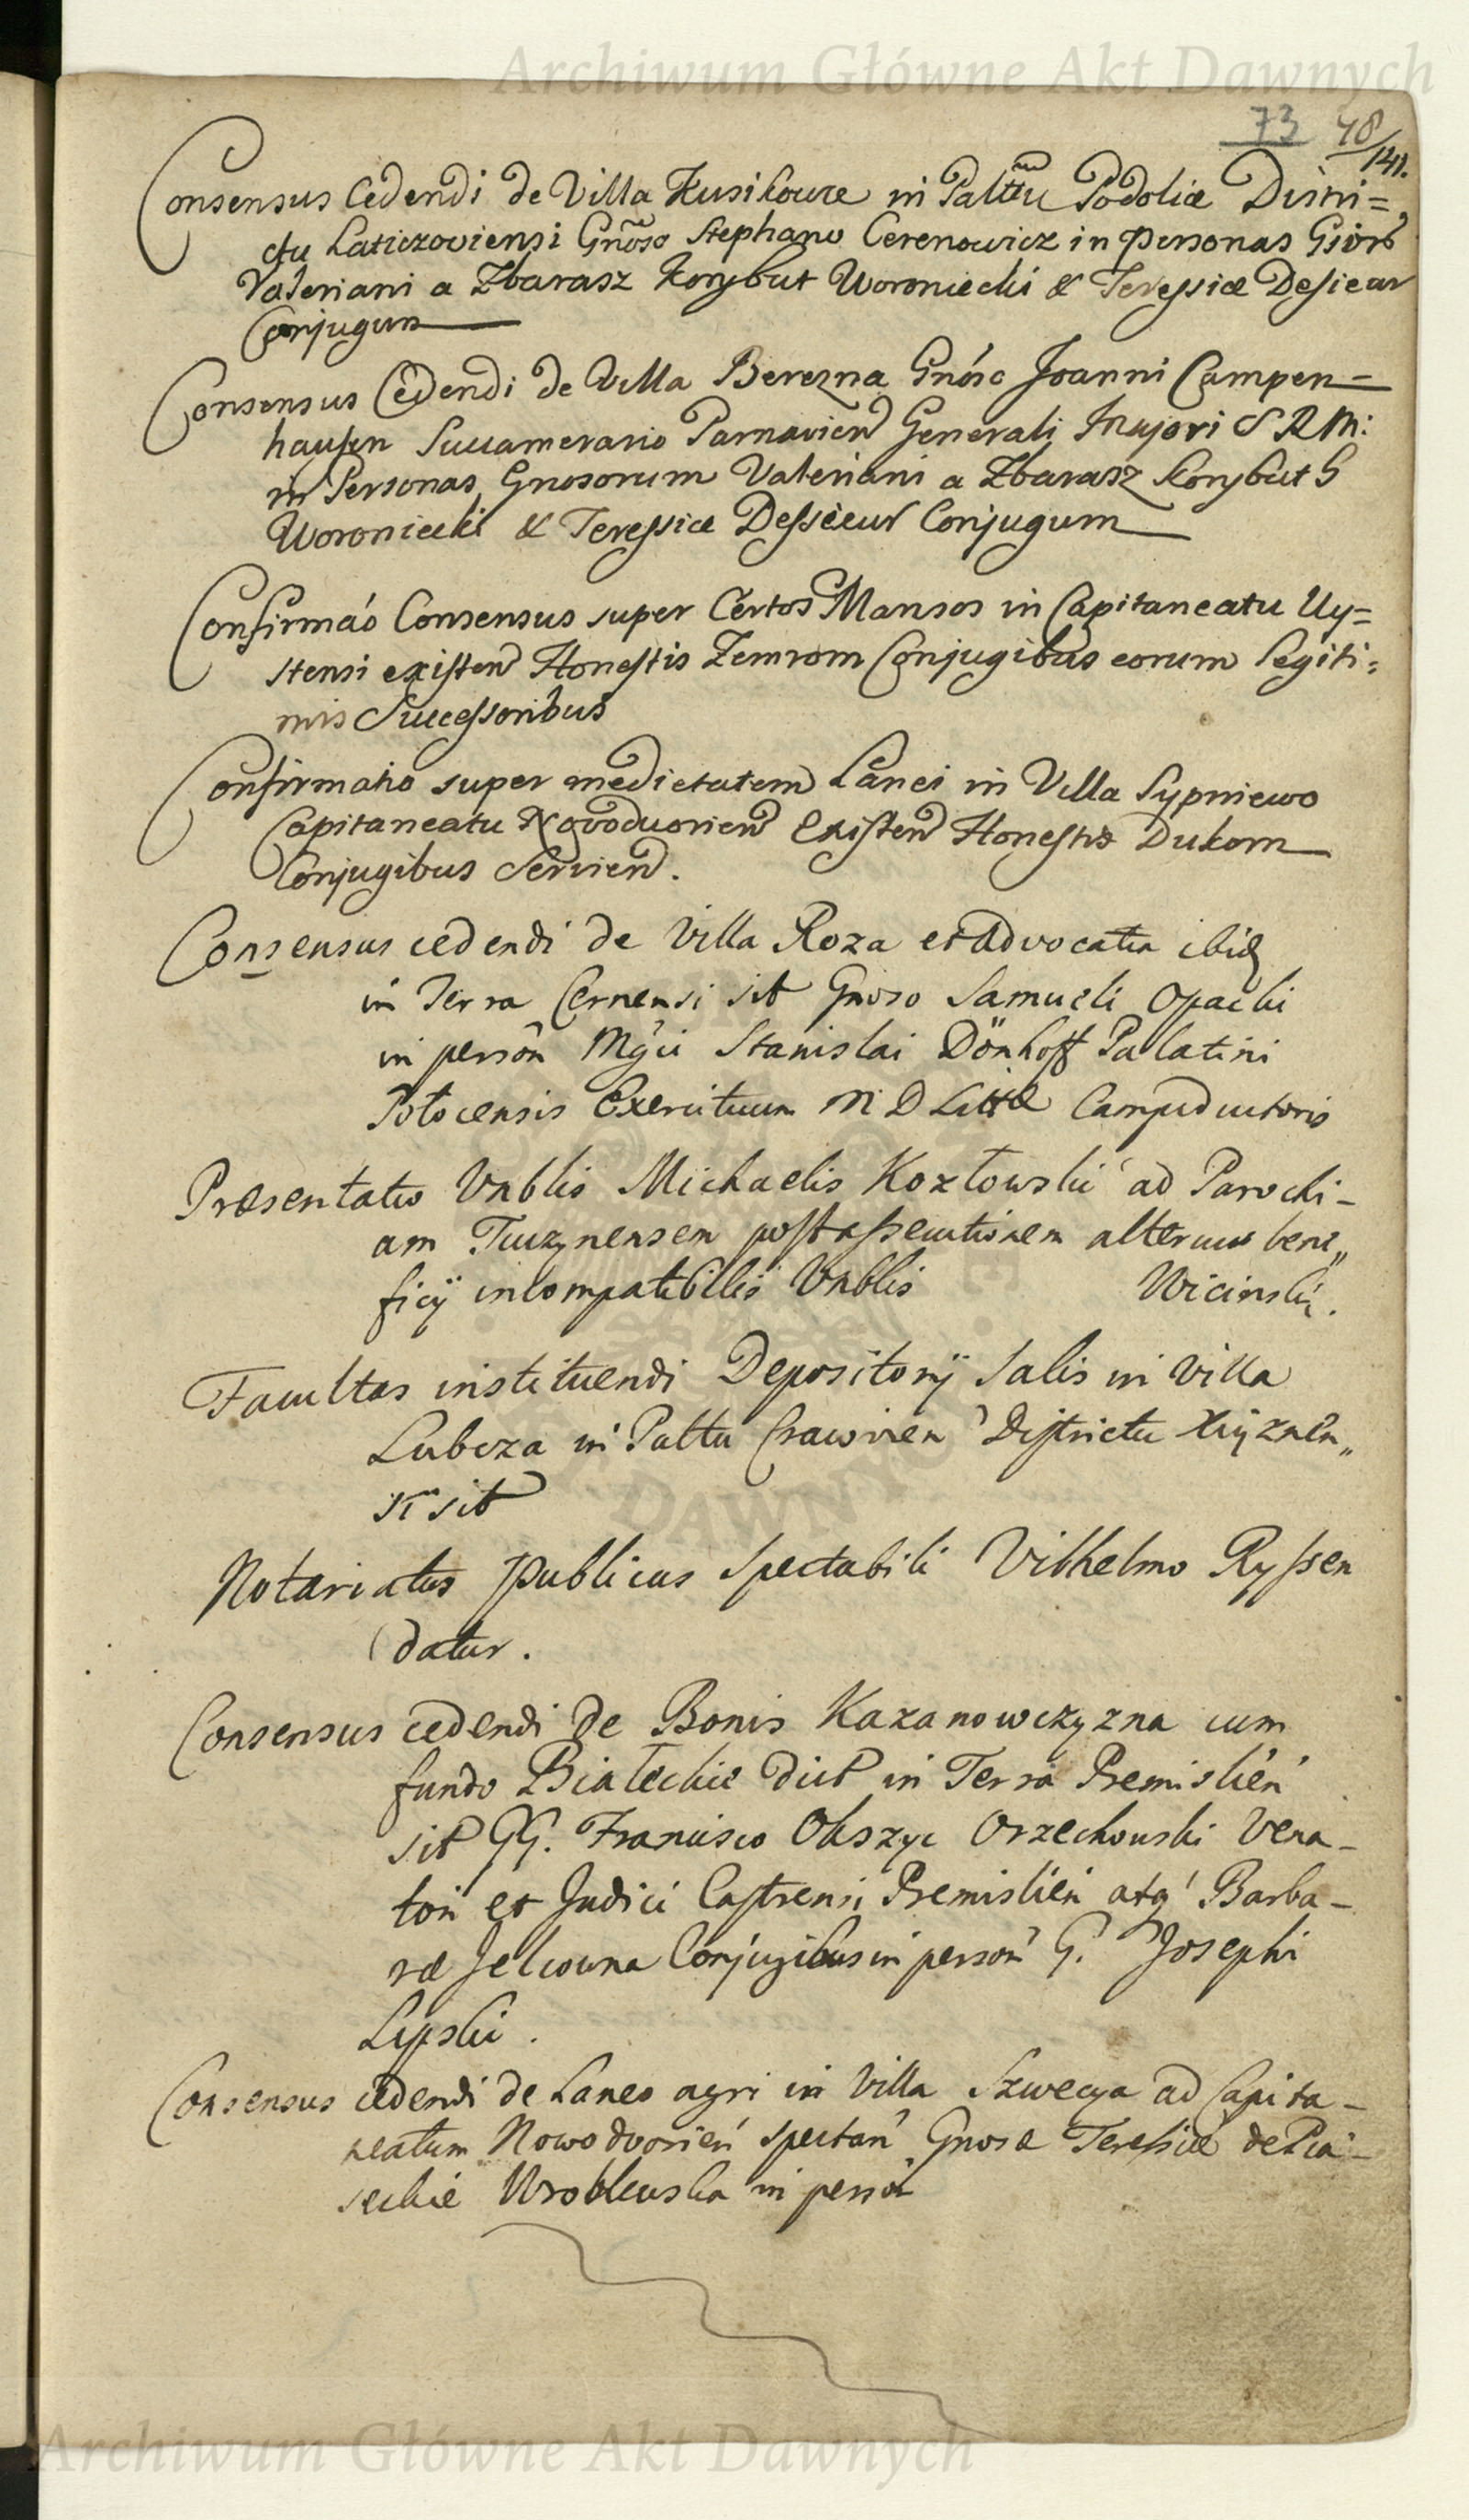 Archiwum Główne Akt Dawnych
73 48/141.
Consensus Cedendi de Villa Kusikowce in Paltũ Podoliæ Distri=
ctu Laticzoviensi Gnõso Stephano Cerenowicz in Personas Gsiorũ
Valeriani a Zbarasz Korybut Woroniecki & Teressiæ Desieur
Conjugum
Consensus Cedendi de Villa Berezna Gnóso Joanni Campen=
hausen Succamerario Parnavien Generali Majori S R M:
in Personas Gnosorum Valeriani a Zbarasz Korybut
Woroniecki & Teressiæ Dessieur Conjugum
Confirmaó Consensus super Certos Mansos in Capitaneatu Uy=
stensi existen Honestis Zemrom Conjugibus eorum legiti=
mis Successoribus
Confirmatio super medietatem Lanei in Villa Sypniewo
Capitaneatu Novoduorien Existen Honestis Dukom
Conjugibus Servien.
Consensus cedendi de Villa Roza et Advocatia ibid
in Terra Cernensi sit Gnoso Samueli Opacki
in persôn Mgci Stanislai Dönhoff Palatini
Polocensis Exercituum M D Littæ Campiductoris
Præsentatio Vnblis Michaelis Kozłowski ad Parochi-
am Tuczynensem post assecutionem alterius bene„
ficij incompatibilis Vnblis Wicinski.
Facultas instituendi Depositorij Salis in Villa
Lubcza in Pattu Cracovien Districtu Xiążnen„
sit
Notariatus Publicus Spectabili Vilhelmo Ryssen
datur.
Consensus cedendi de Bonis Kazanowczyzna cum
fundo Białeckie dict in Terra Premislien
sit GG. Francisco Okszyc Orzechowski Vena-
tori et Judici Castrensi Premislien atq' Barba-
ræ Jelcowna Conjugibus in person G. Josephi
Lipski.
Consensus cedendi de Laneo agri in Villa Szwecya ad Capita-
neatum Nowodvorien spectan Gnosæ Teressiæ de Pia-
seckie Wroblewska in person
Archiwum Główne Akt Dawnych